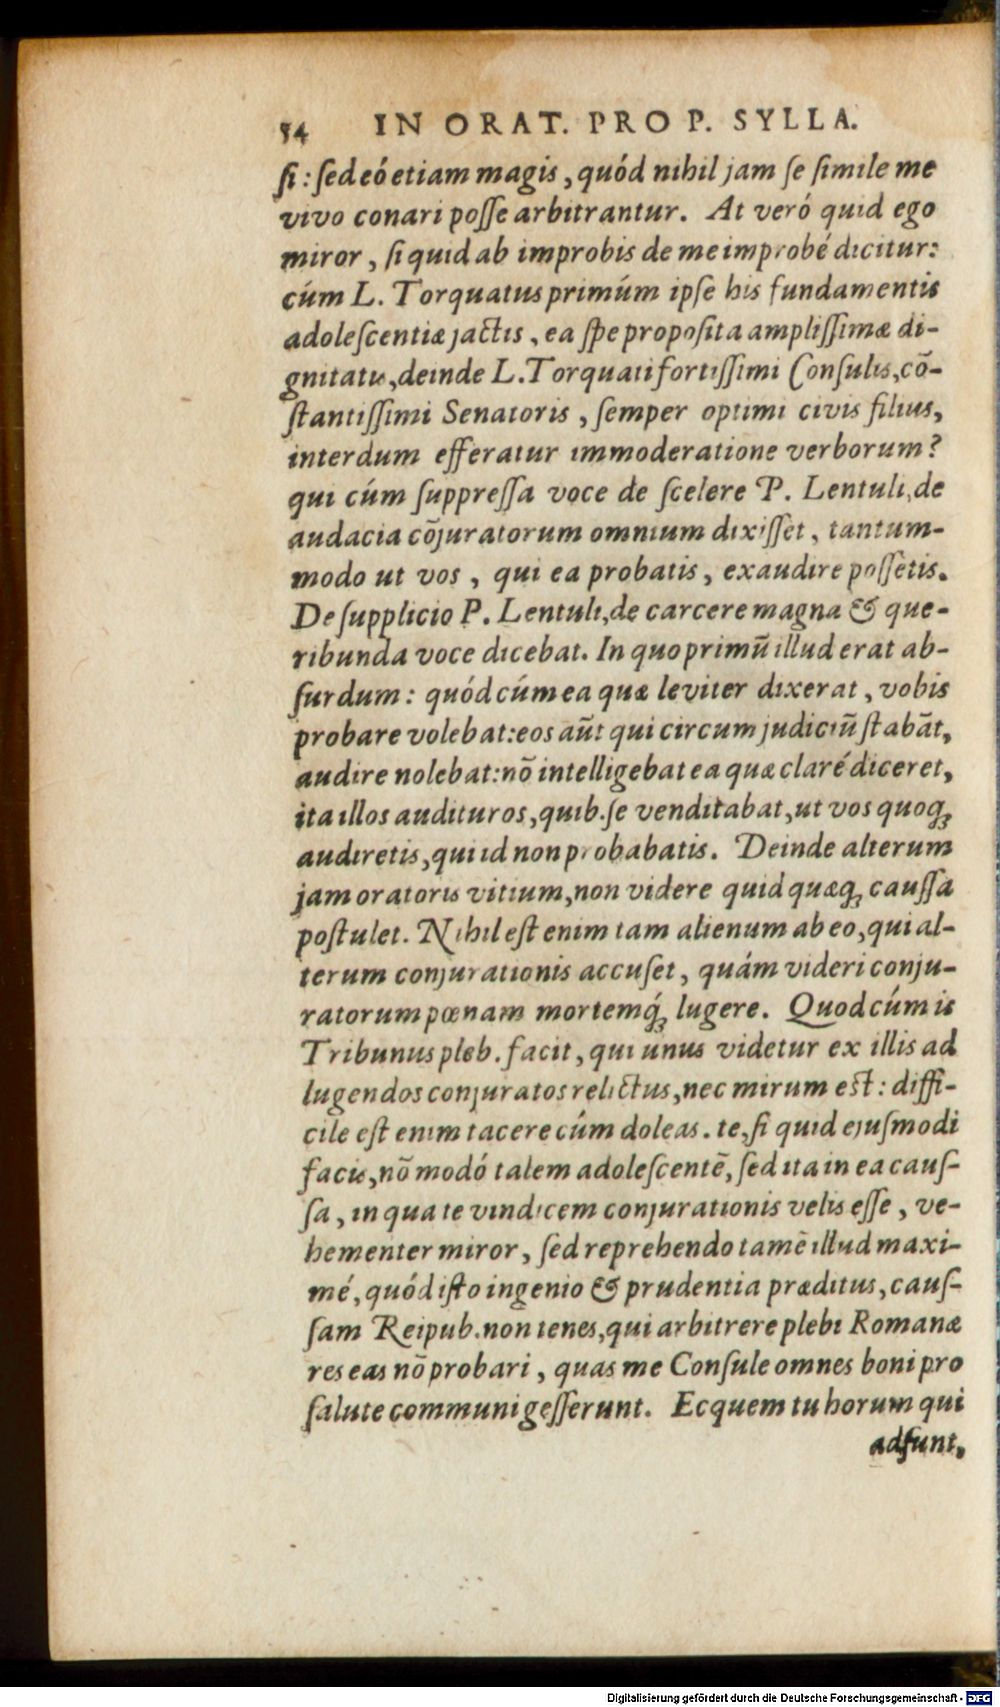 54 IN ORAT. PRO P. SYLLA.
ſi: ſed eó etiam magis, quód nihil jam ſe ſimile me
vivo conari poſſe arbitrantur. At veró quid ego
miror, ſi quid ab improbis de me improbé dicitur:
cúm L. Torquatus primúm ipſe his fundamentis
adoleſcentiæ jactis, ea ſpe propoſita ampliſſimæ di-
gnitatis, deinde L. Torquati fortiſſimi Conſulis, cõ-
ſtantiſſimi Senatoris, ſemper optimi civis filius,
interdum efferatur immoderatione verborum?
qui cúm ſuppreſſa voce de ſcelere P. Lentuli, de
audacia cõjuratorum omnium dixiſſet, tantum-
modo ut vos, qui ea probatis, exaudire poſſetis.
De ſupplicio P. Lentuli, de carcere magna & que-
ribunda voce dicebat. In quo primũ illud erat ab-
ſurdum: quód cúm ea quæ leviter dixerat, vobis
probare volebat: eos aũt qui circum judiciũ ſtabãt,
audire nolebat: nõ intelligebat ea quæ claré diceret,
ita illos audituros, quib. ſe venditabat, ut vos quoq;
audiretis, qui id non probabatis. Deinde alterum
jam oratoris vitium, non videre quid quæq; cauſſa
poſtulet. Nihil eſt enim tam alienum ab eo, qui al-
terum conjurationis accuſet, quám videri conju-
ratorum pœnam mortemq́; lugere. Quod cúm is
Tribunus pleb. facit, qui unus videtur ex illis ad
lugendos conjuratos relictus, nec mirum eſt: diffi-
cile eſt enim tacere cúm doleas. te, ſi quid ejuſmodi
facis, nõ modó talem adoleſcentẽ, ſed ita in ea cauſ-
ſa, in qua te vindicem conjurationis velis eſſe, ve-
hementer miror, ſed reprehendo tamẽ illud maxi-
mé, quód iſto ingenio & prudentia præditus, cauſ-
ſam Reipub. non tenes, qui arbitrere plebi Romanæ
res eas nõ probari, quas me Conſule omnes boni pro
ſalute communi geſſerunt. Ecquem tu horum qui
adſunt,
Digitalisierung gefördert durch die Deutsche Forschungsgemeinschaft - DFG